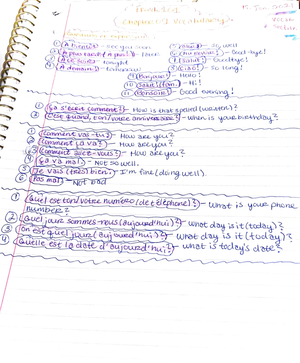 French 1
Chapter 1 Vocabulary
① À bientôt - see you soon
③ Ce soir - tonight
④ À demain - tomorrow
⑦ Au revoir - Good-bye!
⑧ Salut! - Goodbye!
⑨ Ciao! - So long!
⑩ Bonjour! - Hello!
- Hi!
⑫ Bonsoir! - Good evening!
① Ça s'écrit comment? - How is that spelled (written)?
② C'est quand, ton/votre anniversaire? - When is your birthday?
① Comment vas-tu? - How are you?
② Comment ça va? - How are you?
③ Comment allez-vous? - How are you?
④ Ça va mal - Not so well.
⑤ Je vais (très) bien - I'm fine (doing well).
⑥ Pas mal - Not bad
① Quel est ton/votre numéro (de téléphone)? - What is your phone
number?
② Quel jour sommes-nous (aujourd'hui)? - what day is it (today)?
③ On est quel jour (aujourd'hui)? - what day is it (today)?
④ Quelle est la date d'aujourd'hui? - what is today's date?